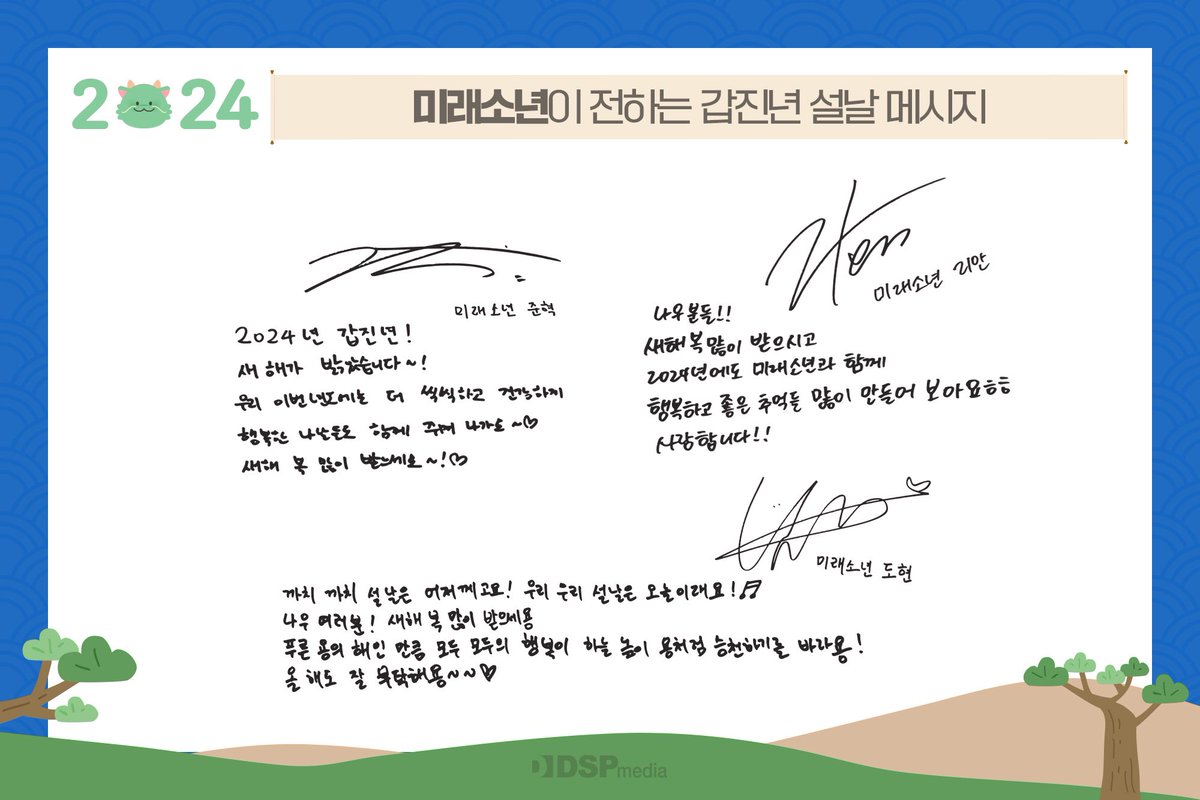 2024
미래소년이 전하는 갑진년 설날 메시지
미래소년 준혁
2024년 갑진년!
새 해가 밝았습니다~!
우리 이번년도에는 더 씩씩하고 건강하게
행복한 나날들도 함께 주며 나가요~♡
새해 복 많이 받으세요~!♡
미래소년 리안
나우분들!!
새해 복 많이 받으시고
2024년에도 미래소년과 함께
행복하고 좋은 추억들 많이 만들어 보아요ㅎㅎ
사랑합니다!!
미래소년 도현
까치 까치 설날은 어저께고요! 우리 우리 설날은 오늘이래요!♬
나우 여러분! 새해 복 많이 받으세용
푸른 용의 해인 만큼 모두 모두의 행복이 하늘 높이 용처럼 승천하기를 바라용!
올 해도 잘 부탁해용~~♡
DSPmedia